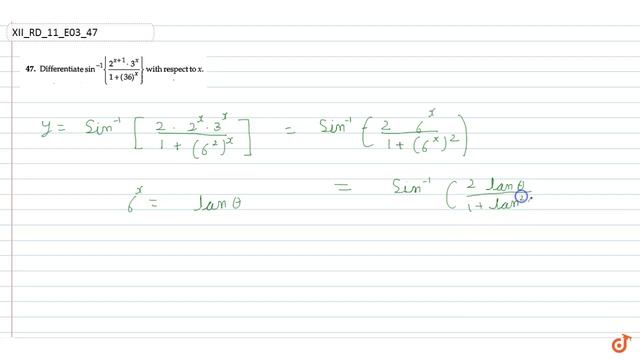 XII_RD_11_E03_47
47. Differentiate sin⁻¹{2^(x+1) · 3^x / 1+(36)^x} with respect to x.
y = Sin⁻¹ [2 · 2^x · 3^x / 1 + (6²)^x] = Sin⁻¹ (2 6^x / 1 + (6^x)²)
6^x = tan θ = Sin⁻¹ (2 tan θ / 1 + tan²
doubtnut